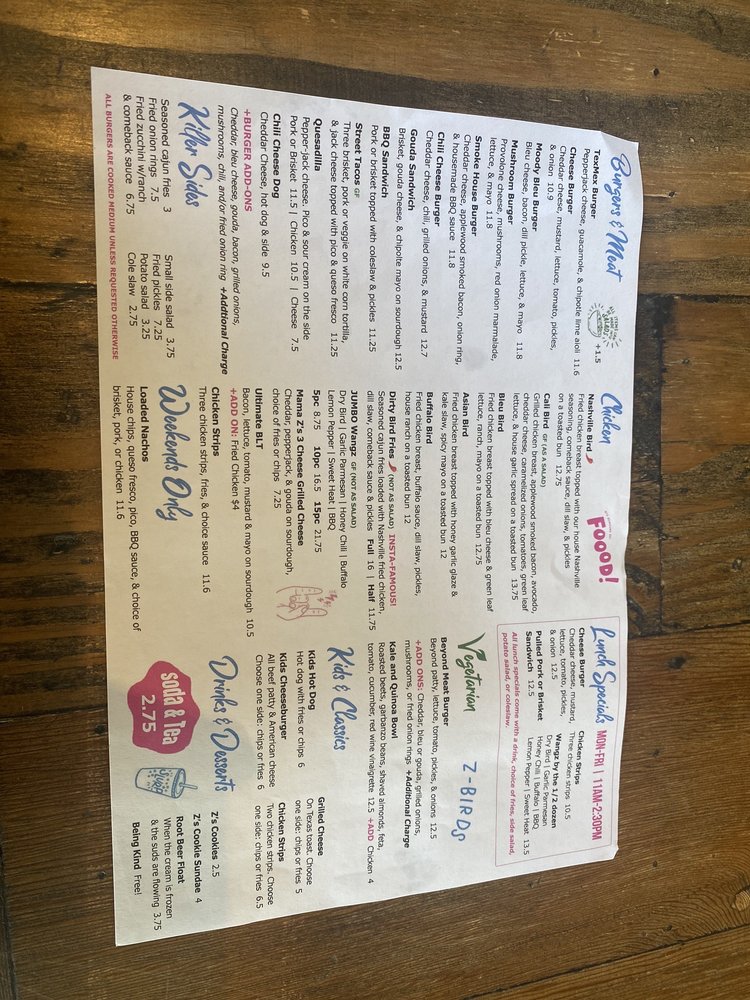 Burgers & Meat
ITEMS CAN BE MADE INTO SALADS
+1.5
TexMex Burger
Pepperjack cheese, guacamole, & chipotle lime aioli 11.6
Cheese Burger
Cheddar cheese, mustard, lettuce, tomato, pickles,
& onion 10.9
Moody Bleu Burger
Bleu cheese, bacon, dill pickle, lettuce, & mayo 11.8
Mushroom Burger
Provolone cheese, mushrooms, red onion marmalade,
lettuce, & mayo 11.8
Smoke House Burger
Cheddar cheese, applewood smoked bacon, onion ring,
& housemade BBQ sauce 11.8
Chili Cheese Burger
Cheddar cheese, chili, grilled onions, & mustard 12.7
Gouda Sandwich
Brisket, gouda cheese, & chipotle mayo on sourdough 12.5
BBQ Sandwich
Pork or brisket topped with coleslaw & pickles 11.25
Street Tacos GF
Three brisket, pork or veggie on white corn tortilla,
& jack cheese topped with pico & queso fresco 11.25
Quesadilla
Pepper-jack cheese. Pico & sour cream on the side
Pork or Brisket 11.5 | Chicken 10.5 | Cheese 7.5
Chili Cheese Dog
Cheddar Cheese, hot dog & side 9.5
+BURGER ADD-ONS
Cheddar, bleu cheese, gouda, bacon, grilled onions,
mushrooms, chili, and/or fried onion ring +Additional Charge
Killer Sides
Seasoned cajun fries 3
Fried onion rings 7.5
Fried zucchini w/ranch
& comeback sauce 6.75
Small side salad 3.75
Fried pickles 7.25
Potato salad 3.25
Cole slaw 2.75
ALL BURGERS ARE COOKED MEDIUM UNLESS REQUESTED OTHERWISE
FOOOD!
Chicken
Nashville Bird
Fried chicken breast topped with our house Nashville
seasoning, comeback sauce, dill slaw, & pickles
on a toasted bun 12.75
Cali Bird GF (AS A SALAD)
Grilled chicken breast, applewood smoked bacon, avocado,
cheddar cheese, caramelized onions, tomatoes, green leaf
lettuce, & house garlic spread on a toasted bun 13.75
Bleu Bird
Fried chicken breast topped with bleu cheese & green leaf
lettuce, ranch, mayo on a toasted bun 12.75
Asian Bird
Fried chicken breast topped with honey garlic glaze &
kale slaw, spicy mayo on a toasted bun 12
Buffalo Bird
Fried chicken breast, buffalo sauce, dill slaw, pickles,
house ranch on a toasted bun 12
Dirty Bird Fries (NOT AS SALAD) INSTA-FAMOUS!
Seasoned cajun fries loaded with Nashville fried chicken,
dill slaw, comeback sauce & pickles Full 16 | Half 11.75
JUMBO Wangz GF (NOT AS SALAD)
Dry Bird | Garlic Parmesan | Honey Chili | Buffalo
Lemon Pepper | Sweet Heat | BBQ
5pc 8.75 10pc 16.5 15pc 21.75
Mama Z's 3 Cheese Grilled Cheese
Cheddar, pepperjack, & gouda on sourdough,
choice of fries or chips 7.25
Ultimate BLT
Bacon, lettuce, tomato, mustard & mayo on sourdough 10.5
+ADD ON: Fried Chicken $4
Chicken Strips
Three chicken strips, fries, & choice sauce 11.6
Weekends Only
Loaded Nachos
House chips, queso fresco, pico, BBQ sauce, & choice of
brisket, pork, or chicken 11.6
Lunch Specials MON-FRI | 11AM-2:30PM
Cheese Burger
Cheddar cheese, mustard,
lettuce, tomato, pickles,
& onion 12.5
Pulled Pork or Brisket
Sandwich 12.5
Chicken Strips
Three chicken strips 10.5
Wangz by the 1/2 dozen
Dry Bird | Garlic Parmesan
Honey Chili | Buffalo | BBQ
Lemon Pepper | Sweet Heat 13.5
All lunch specials come with a drink, choice of fries, side salad,
potato salad, or coleslaw.
Vegetarian
Z-BIRDS
Beyond Meat Burger
Beyond patty, lettuce, tomato, pickles, & onions 12.5
+ADD ONS: Cheddar, bleu or gouda, grilled onions,
mushrooms, or fried onion rings +Additional Charge
Kale and Quinoa Bowl
Roasted beets, garbanzo beans, shaved almonds, feta,
tomato, cucumber, red wine vinaigrette 12.5 +ADD Chicken 4
Kids & Classics
Kids Hot Dog
Hot dog with fries or chips 6
Kids Cheeseburger
All beef patty & American cheese
Choose one side: chips or fries 6
Grilled Cheese
On Texas toast. Choose
one side: chips or fries 5
Chicken Strips
Two chicken strips. Choose
one side: chips or fries 6.5
Drinks & Desserts
soda & tea
2.75
Z's Cookies 2.5
Z's Cookie Sundae 4
Root Beer Float
When the cream is frozen
& the suds are flowing 3.75
Being Kind Free!